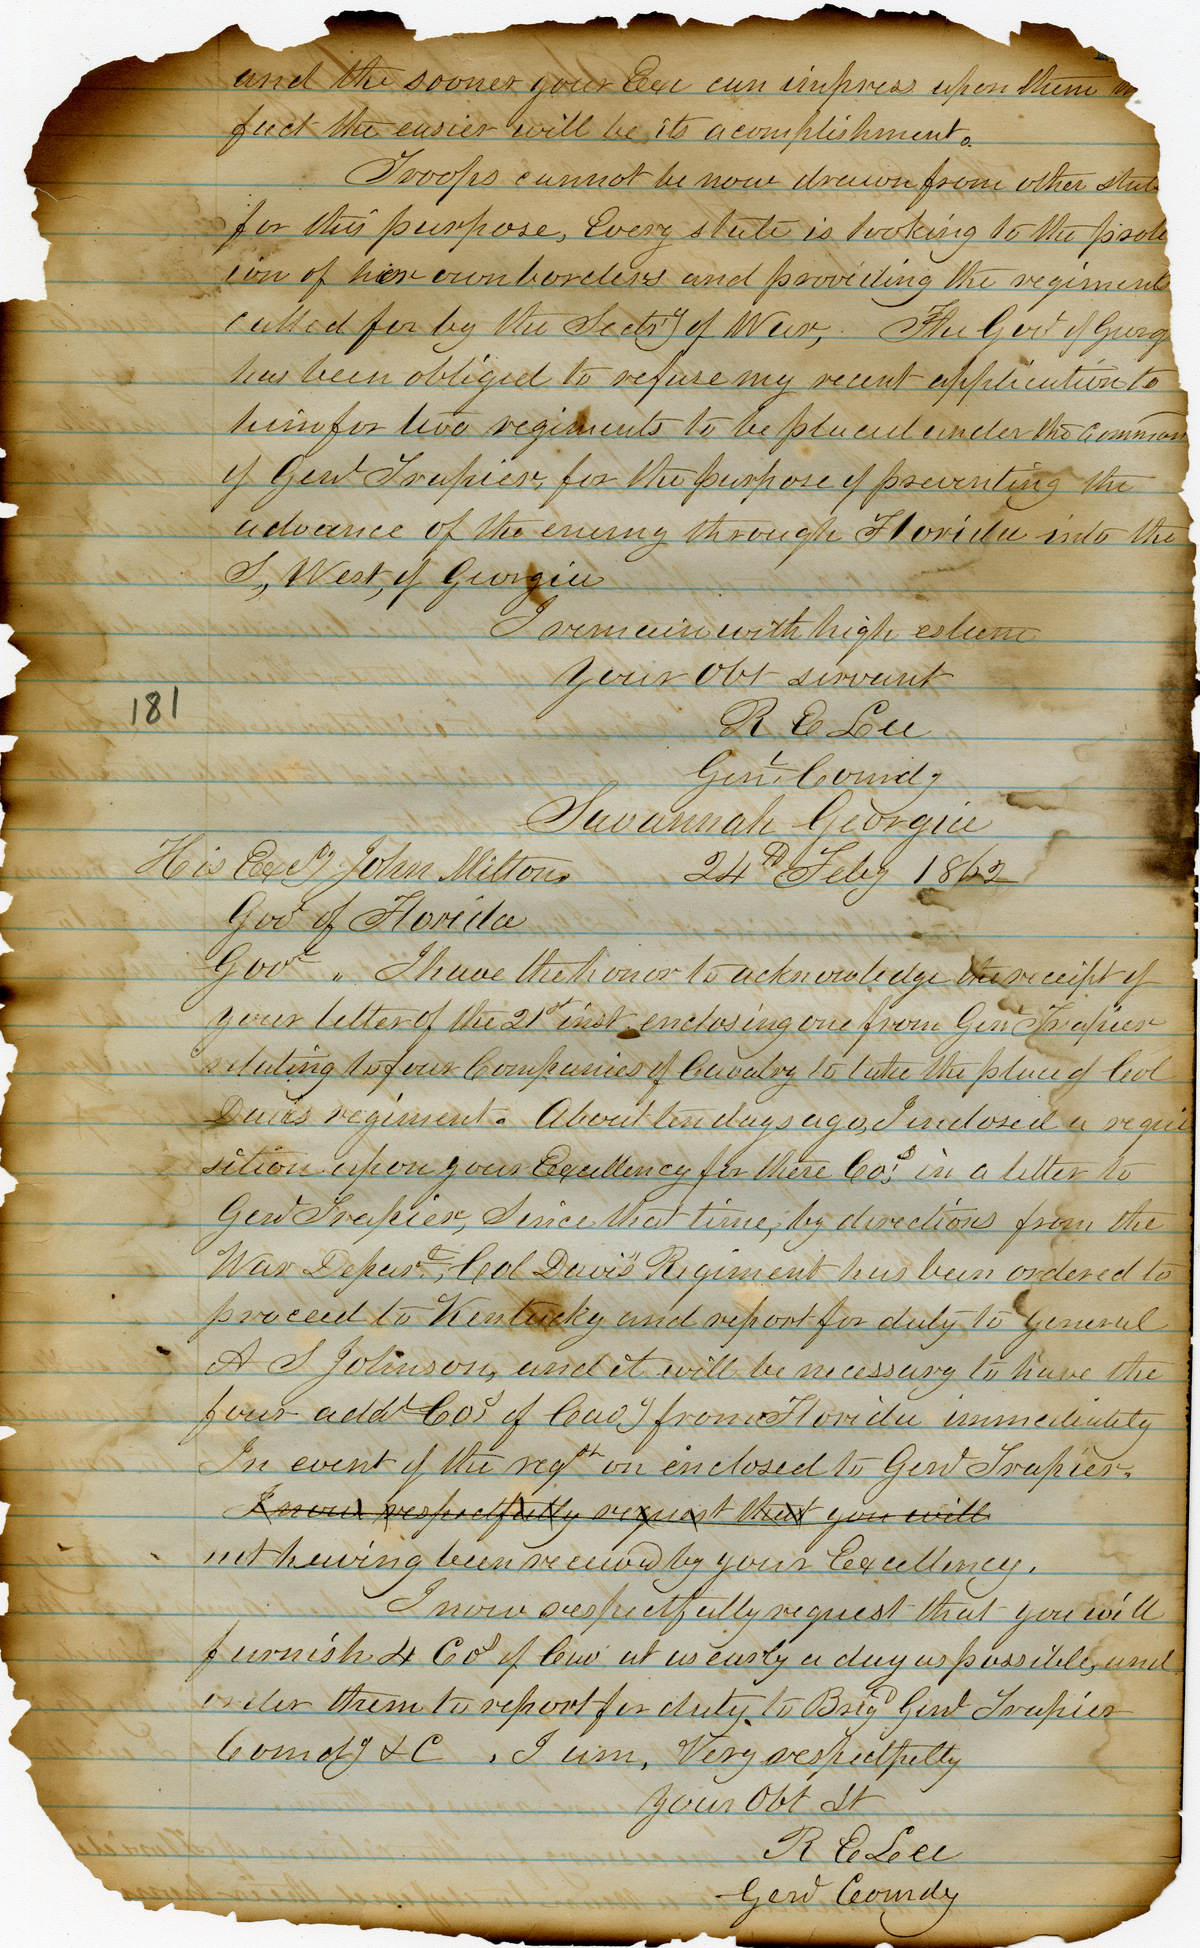 and the sooner your Exe can impress upon them
fact the easier will be its acomplishment.
Troops cannot be now drawn from other state
for this purpose, Every state is looking to the prote
ion of her own borders and providing the regiments
called for by the Sectry of War, The Govr of Georg
has been obliged to refuse my recent application to
him for two regiments to be placed under the comman
of Genl Trapier, for the purpose of preventing the
advance of the enemy through Florida into the
S, West, of Georgia
I remain with high esteem
Your Obt servant
R E Lee
Genl Comdg
181
Savannah Georgia
His Excy John Milton, 24th Feby 1862
Govr of Florida
Govr " I have the honor to acknowledge the receipt of
your letter of the 21st inst. enclosing one from Genl Trapier
relating to four Companies of Cavalry to take the place of Col
Davis regiment. About ten days ago, I inclosed a requi
sition upon your Excellency for these Cos in a letter to
Genl Trapier, Since that time, by directions from the
War Depart, Col Davis Regiment has been ordered to
proceed to Kentucky and report for duty to General
A S Johnson, and it will be necessary to have the
four addl Cos of Cavy from Florida immediately
In event of the reqtn on enclosed to Genl Trapier.
I now respectfully request that you will
not having been received by your Excellency.
I now respectfully request that you will
furnish 4 Cos of Cav at as early a day as possible, and
order them to report for duty to Brigd Genl Trapier
Comdg &C , I am, Very respectfully
Your Obt St
R E Lee
Genl Comdg